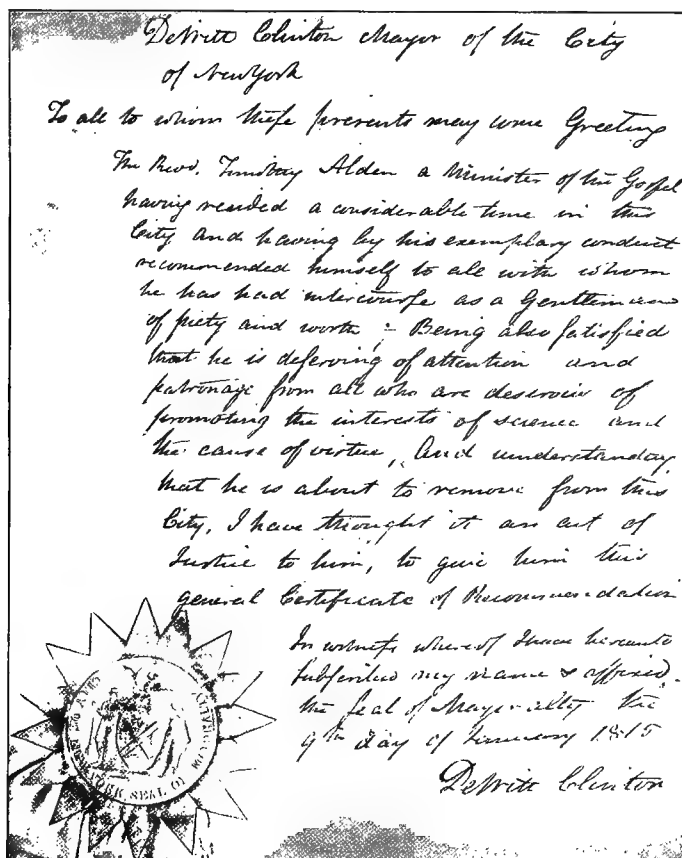 DeWitt Clinton Mayor of the City
of New York
To all to whom these presents may come Greeting
The Revd. Timothy Alden a Minister of the Gospel
having resided a considerable time in this
City and having by his exemplary conduct
recommended himself to all with whom
he has had intercourse as a Gentleman
of piety and worth; Being also satisfied
that he is deserving of attention and
patronage from all who are desirous of
promoting the interests of science and
the cause of virtue, And understanding
that he is about to remove from this
City, I have thought it an act of
Justice to him, to give him this
general Certificate of Recommendation
In witness whereof I have hereunto
subscribed my name & affixed
the seal of Mayoralty the
9th day of January 1815
DeWitt Clinton
YORK SEAL OF MAYORALTY